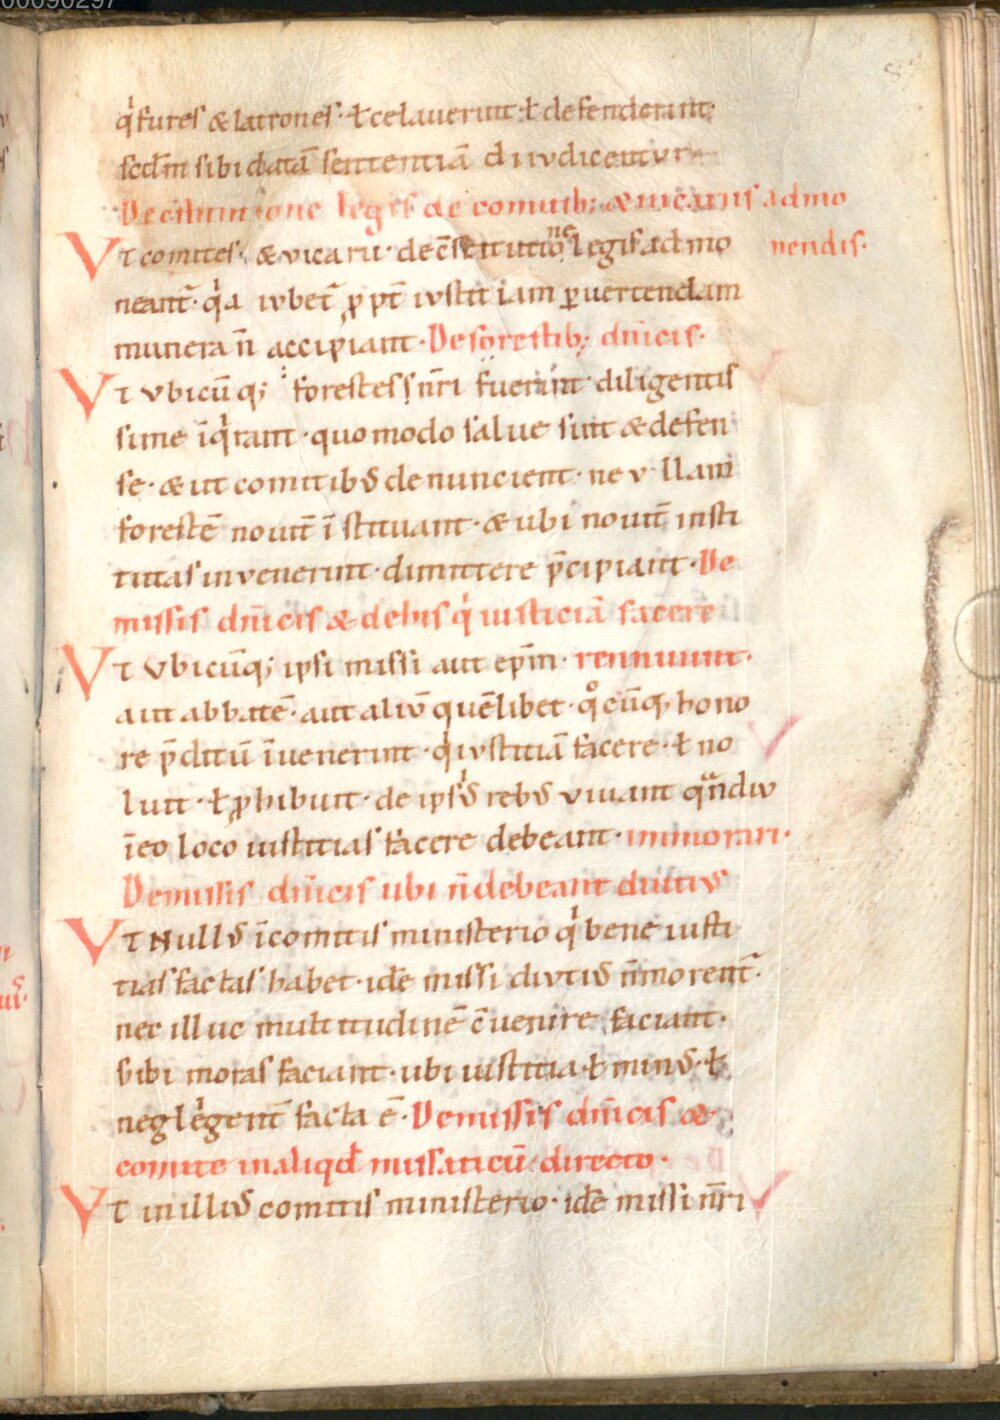 00090297
85
q̇ fures & latrones· ł celauerunt· ł defenderunt·
scd̄m sibi datā sententiā diiudicentur
De cstitutione legis de comitib; & uicariis admo
Vt comites· & vicarii· de c̄stitutiōne legis admo nendis·
neant̄· q̇a iubet̄ ꝓpt̄ iustitiam ꝑuertendam
munera n̄ accipiant· De forestib; dn̄icis·
Vt vbicūq; forestes n̄ri fuerint diligentis
sime īq̇rant· quomodo salue sint & defen
se· & ut comitibꝰ denuncient· ne vllam
forestē nouit̄ īstituant· & ubi nouit̄ insti
tutas invenerint· dimittere p̄cipiant· De
missis dn̄icis & de his q̇ iusticiā facere
Vt vbicūq; ipsi missi aut ep̄m· rennuunt·
aut abbatē· aut aliū quēlibet· qͦcūq; hono
re p̄ditū īuenerint· q̇ iustitiā facere· ł no
lunt· ł ꝓhibunt· de ipsꝰ rebꝰ vivant qᵃndiu
ī eo loco iustitias facere debeant· immorari·
De missis dn̄icis ubi n̄ debeant diutius
Vt Nullꝰ ī comitis ministerio q̇ bene iusti
tias factas habet· idē missi diutiꝰ n̄ morent̄·
nec illuc multitudinē c̄uenire faciant·
Sibi moras faciant· ubi iustitia· ł minꝰ· ł
neglegent̄ facta ē· De missis dn̄icis &
comite in aliqd̄ missaticū directo·
Vt in illiꝰ comitis ministerio· idē missi n̄ri